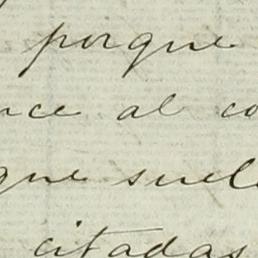 porque
nce al co
que suel
citadas